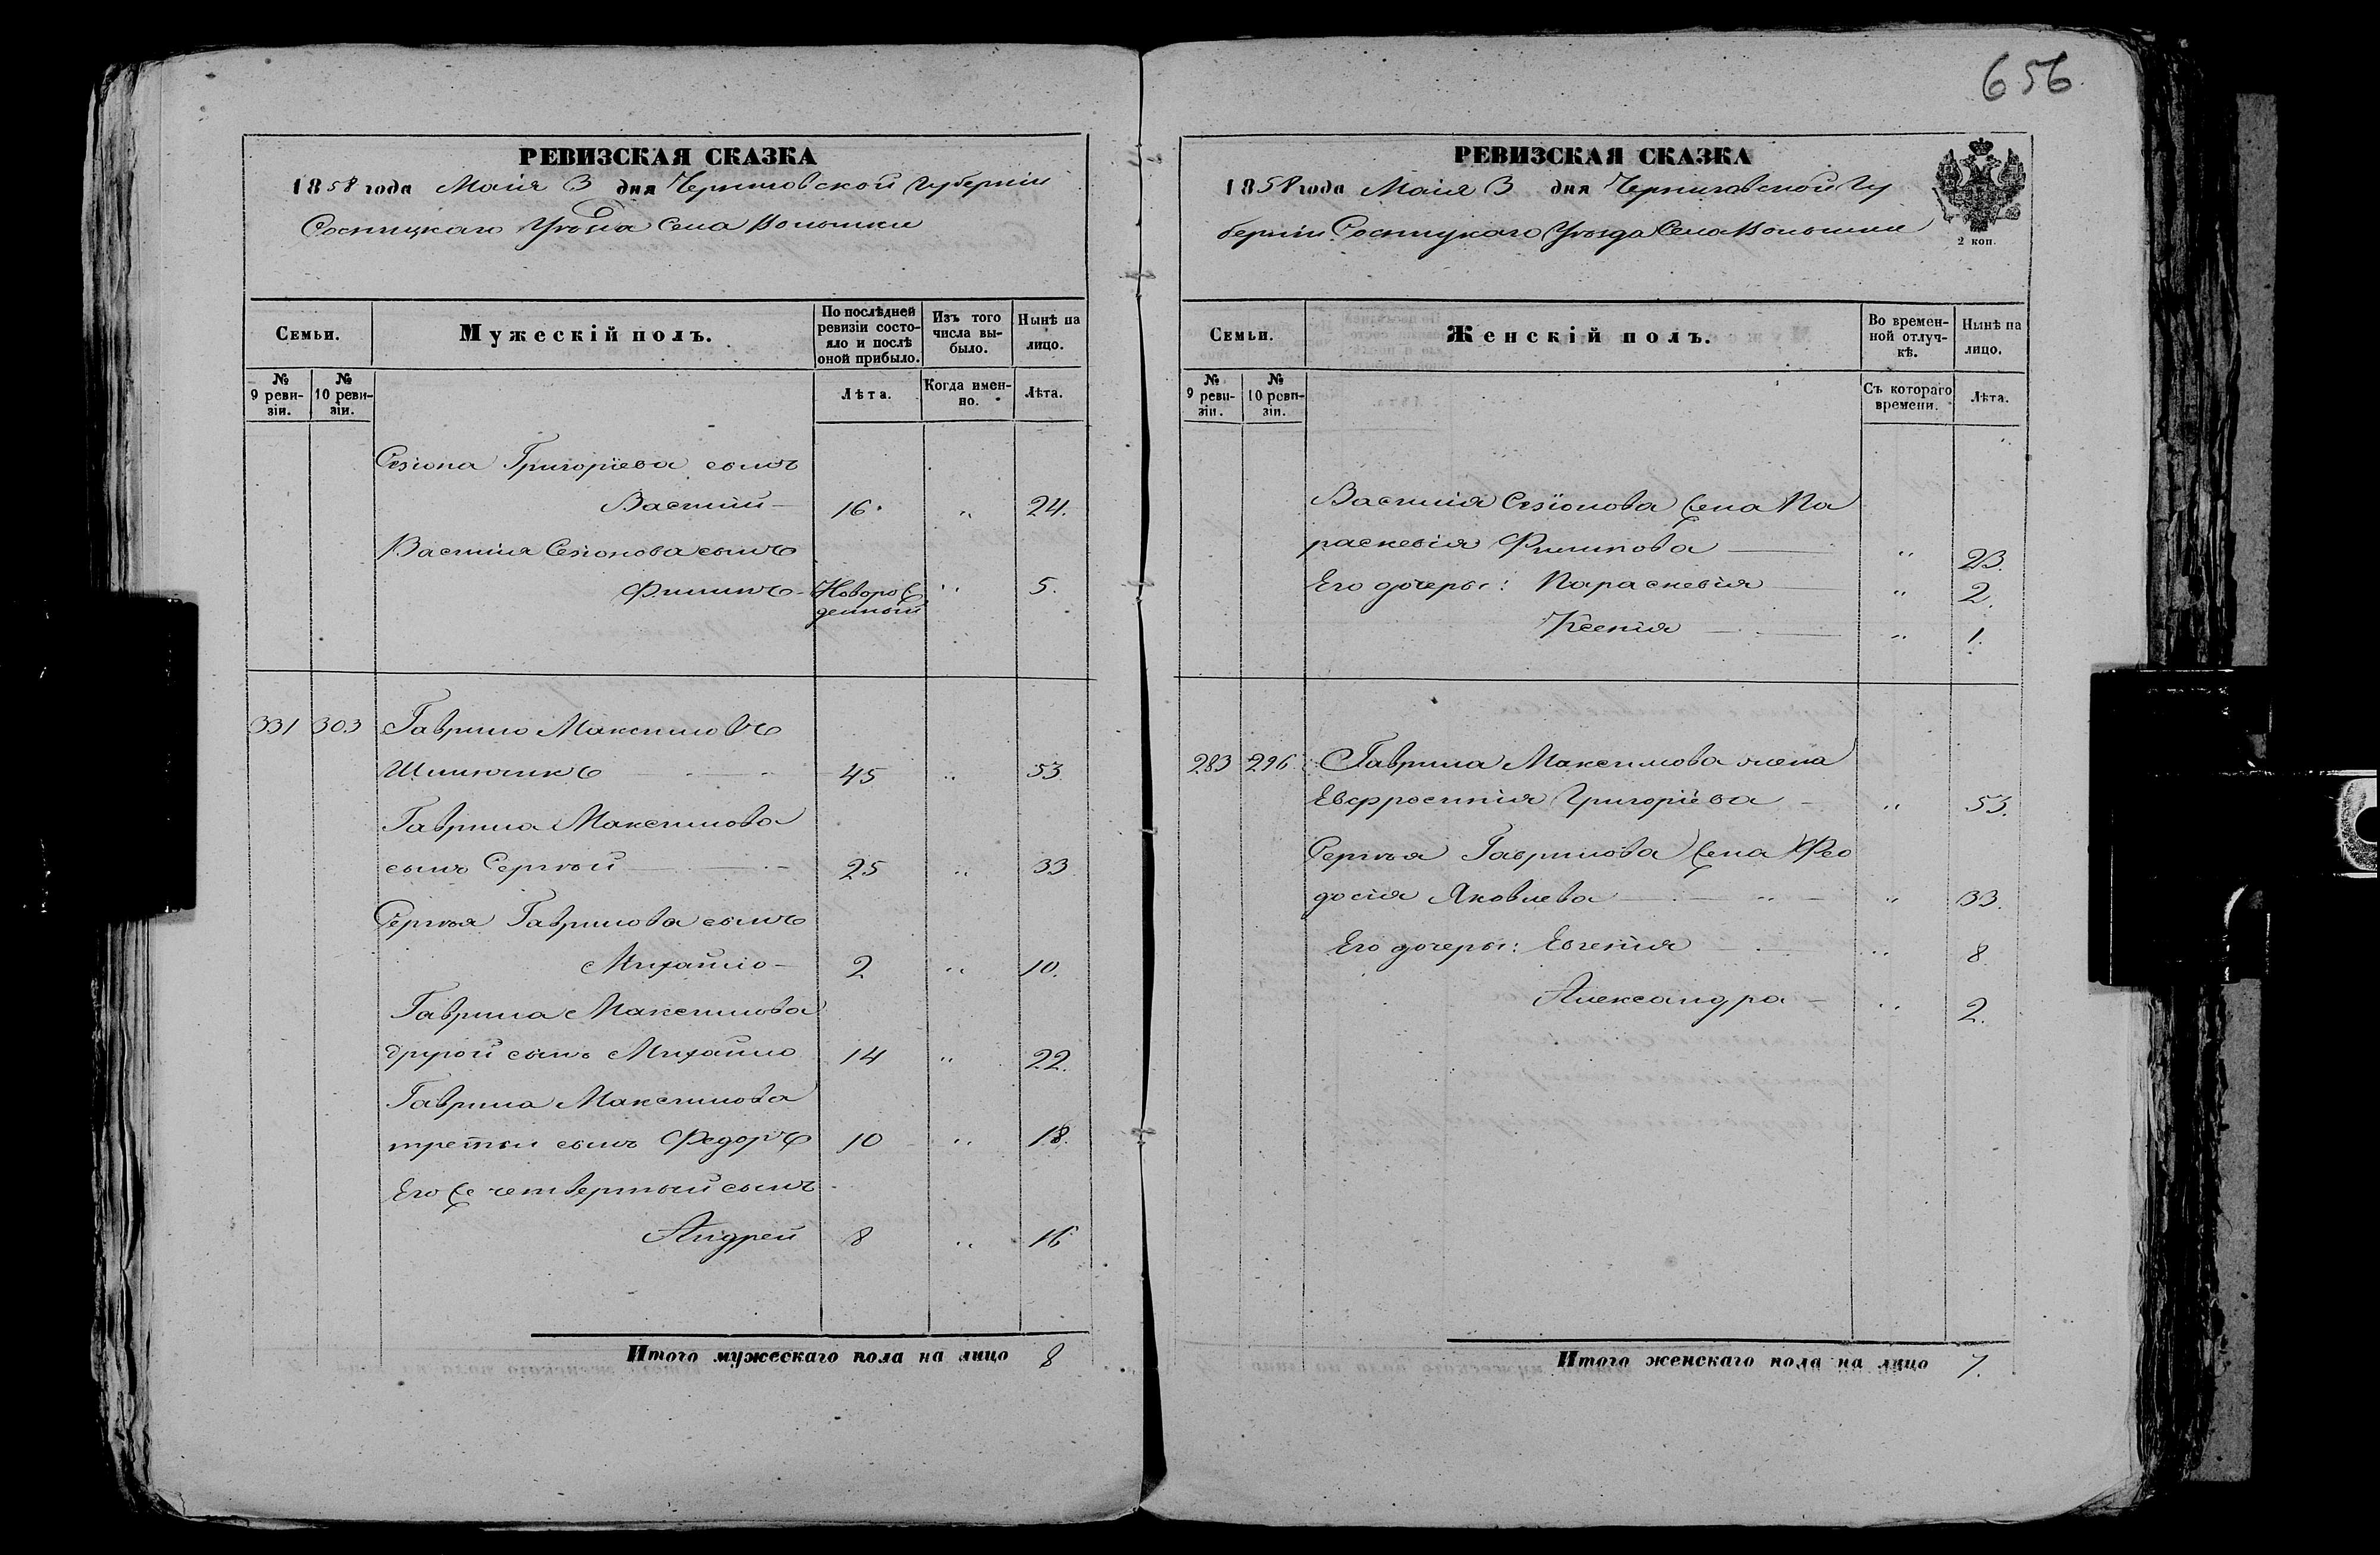 656
РЕВИЗСКАЯ СКАЗКА
1858 года Маія 3 дня Черниговской Губерніи
Сосницкаго Уѣзда Села Волынки
Семьи.
Мужескій полъ.
По послѣдней ревизіи состояло и послѣ оной прибыло.
Изъ того числа выбыло.
Нынѣ на лицо.
№ 9 ревизіи.
№ 10 ревизіи.
Лѣта.
Когда именно.
Лѣта.
Григоріева сынъ
Василій 16 „ 24.
Василія сынъ
Филипъ Новорожденный „ 5.
331 303 Гаврило Максимовъ
45 „ 53
Гаврила Максимова
сынъ Сергѣй 25 „ 33
Сергѣя Гаврилова сынъ
Михайло 2 „ 10.
Гаврила Максимова
другой сынъ Михайло 14 „ 22.
Гаврила Максимова
третій сынъ Федоръ 10 „ 18.
Его же четвертый сынъ
Андрей 8 „ 16
Итого мужескаго пола на лицо 8
РЕВИЗСКАЯ СКАЗКА
1858 года Маія 3 дня Черниговской Гу
берніи Сосницкаго Уѣзда Села Волынки
2 коп.
Семьи.
Женскій полъ.
Во временной отлучкѣ.
Нынѣ на лицо.
№ 9 ревизіи.
№ 10 ревизіи.
Съ котораго времени.
Лѣта.
Василія жена Па
раскевія Филипова „ 23.
Его дочеры: Параскевія „ 2.
Ксенія „ 1.
283 296 Гаврила Максимова жена
Евфросинія Григоріева „ 53.
Сергѣя Гаврилова жена Фео
досія Яковлева „ 33.
Его дочеры: Евгенія „ 8.
Александра „ 2.
Итого женскаго пола на лицо 7.